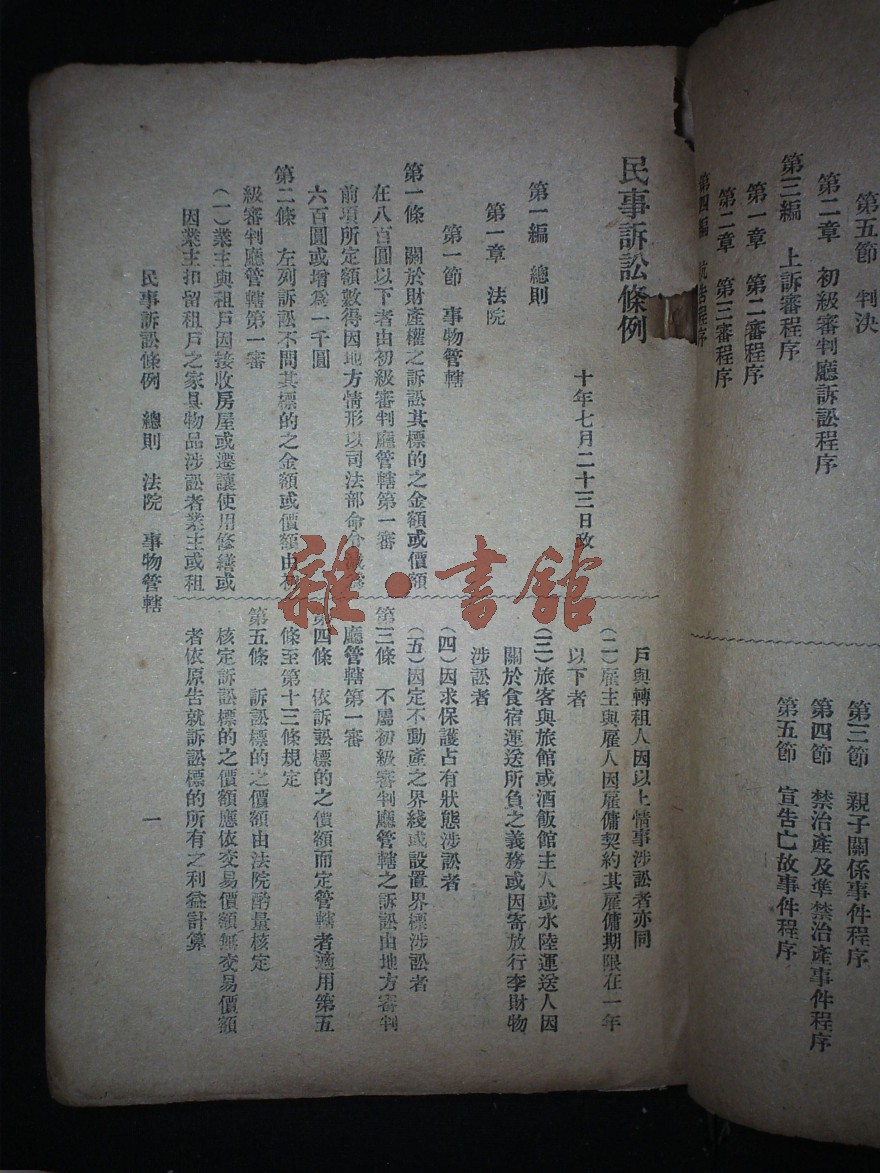 第五節 判決
第二章 初級審判廳訴訟程序
第三編 上訴審程序
第一章 第二審程序
第二章 第三審程序
第四編 抗告程序
第三節 親子關係事件程序
第四節 禁治產及準禁治產事件程序
第五節 宣告亡故事件程序
民事訴訟條例
十年七月二十三日政
第一編 總則
第一章 法院
第一節 事物管轄
第一條 關於財產權之訴訟其標的之金額或價額
在八百圓以下者由初級審判廳管轄第一審
前項所定額數得因地方情形以司法部命令減爲
六百圓或增爲一千圓
第二條 左列訴訟不問其標的之金額或價額由初
級審判廳管轄第一審
(一)業主與租戶因接收房屋或遷讓使用修繕或
因業主扣留租戶之家具物品涉訟者業主或租
戶與轉租人因以上情事涉訟者亦同
(二)雇主與雇人因雇傭契約其雇傭期限在一年
以下者
(三)旅客與旅館或酒飯館主人或水陸運送人因
關於食宿運送所負之義務或因寄放行李財物
涉訟者
(四)因求保護占有狀態涉訟者
(五)因定不動產之界綫或設置界標涉訟者
第三條 不屬初級審判廳管轄之訴訟由地方審判
廳管轄第一審
第四條 依訴訟標的之價額而定管轄者適用第五
條至第十三條規定
第五條 訴訟標的之價額由法院酌量核定
核定訴訟標的之價額應依交易價額無交易價額
者依原告就訴訟標的所有之利益計算
民事訴訟條例 總則 法院 事物管轄
一
雜·書館